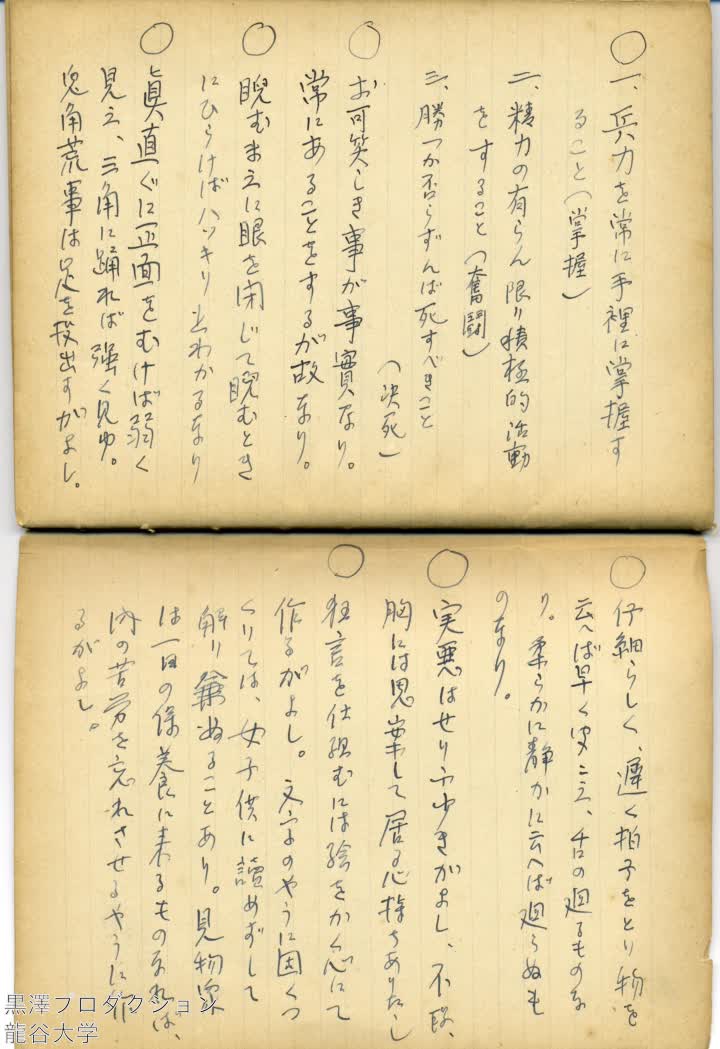 ○
一、兵力を常に手裡に掌握す
ること（掌握）
二、精力の有らん限り積極的活動
をすること（奮闘）
三、勝つか否らずんば死すべきこと
（決死）
○
お可笑しき事が事實なり。
常にあることをするが故なり。
○
睨むまえに眼を閉じて睨むとき
にひらけばハッキリとわかるなり
○
眞直ぐに正面をむけば弱く
見え、三角に踊れば強く見ゆ。
鬼角荒事は足を投出すがよし。
○
仔細らしく、遅く拍子をとり物を
云へば早く聞こえ、舌の廻るものな
り。柔らかに静かに云へば廻らぬも
のなり。
○
実悪はせりふゆきがよし、不段、
胸には思案して居る心持ちありたし
○
狂言を仕組むには絵をかく心にて
作るがよし。文字のやうに固くつ
くりては、女子供に讀めずして
解り兼ぬることあり。見物衆
は一日の保養に来るものなれば、
内の苦労を忘れさせるやうに作
るがよし。
黒澤プロダクション
龍谷大学